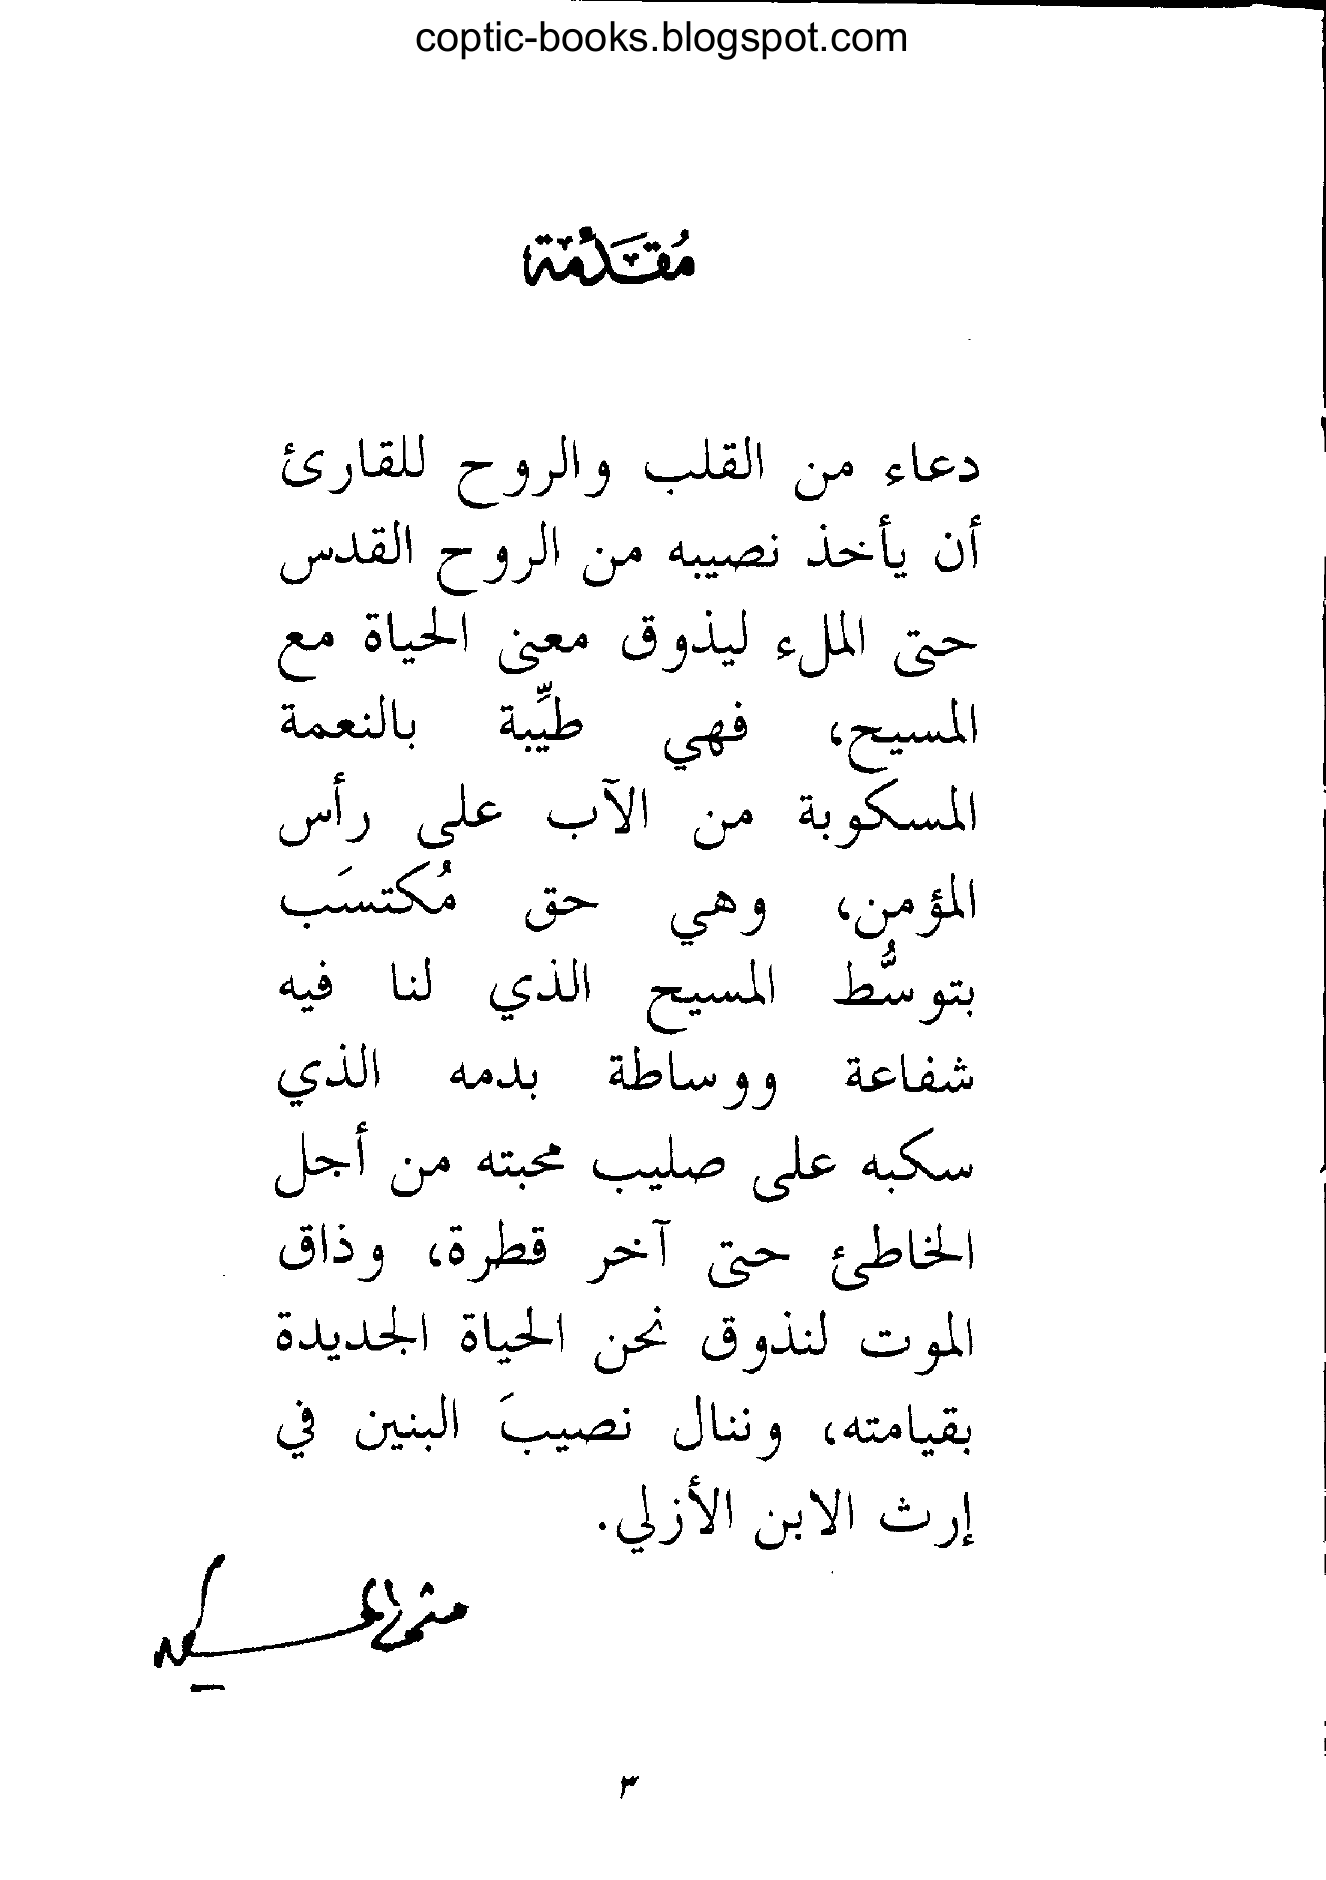 coptic-books.blogspot.com
مُقَدِّمَة
دعاء من القلب والروح للقارئ
أن يأخذ نصيبه من الروح القدس
حتى الملء ليذوق معنى الحياة مع
المسيح، فهي طيِّبة بالنعمة
المسكوبة من الآب على رأس
المؤمن، وهي حق مُكتسَب
بتوسُّط المسيح الذي لنا فيه
شفاعة ووساطة بدمه الذي
سكبه على صليب محبته من أجل
الخاطئ حتى آخر قطرة، وذاق
الموت لنذوق نحن الحياة الجديدة
بقيامته، وننال نصيبَ البنين في
إرث الابن الأزلي.
٣